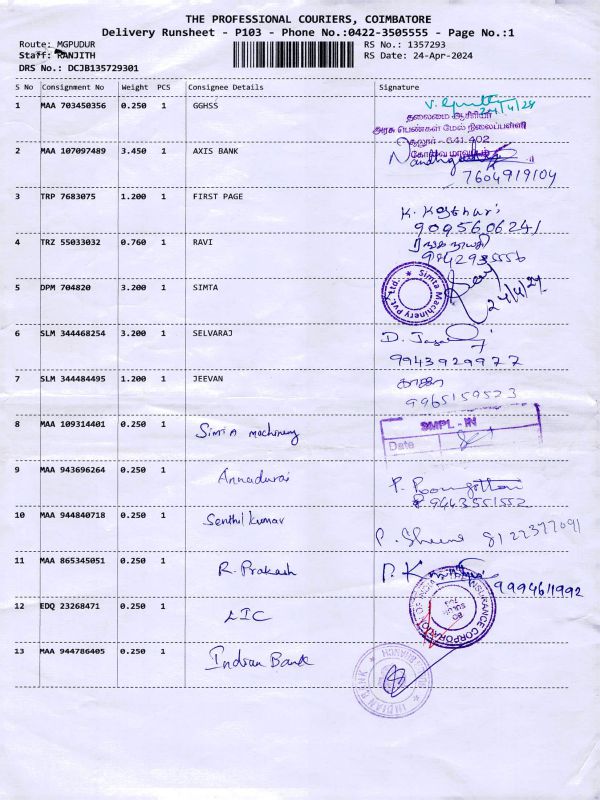 THE PROFESSIONAL COURIERS, COIMBATORE
Delivery Runsheet - P103 - Phone No.:0422-3505555 - Page No.:1
Route: MGPUDUR RS No.: 1357293
Staff: RANJITH RS Date: 24-Apr-2024
DRS No.: DCJB135729301
S No Consignment No Weight PCS Consignee Details Signature
1 MAA 703450356 0.250 1 GGHSS
24/4/24
தலைமை ஆசிரியர்
அரசு பெண்கள் மேல் நிலைப்பள்ளி
சூலூர் - 641 402
கோவை மாவட்டம்
2 MAA 107097489 3.450 1 AXIS BANK
7604919104
3 TRP 7683075 1.200 1 FIRST PAGE
K. Kasthuri
9095606241
4 TRZ 55033032 0.760 1 RAVI
9842935556
5 DPM 704820 3.200 1 SIMTA
Simta Machinery Pvt. Ltd.,
24/4/24
6 SLM 344468254 3.200 1 SELVARAJ
9943929977
7 SLM 344484495 1.200 1 JEEVAN
9965159523
8 MAA 109314401 0.250 1 Simta machinery
SMPL - IN
Date
9 MAA 943696264 0.250 1 Annadurai
9443551552
10 MAA 944840718 0.250 1 Senthil kumar
8122377091
11 MAA 865345051 0.250 1 R. Prakash
9994611992
12 EDQ 23268471 0.250 1 LIC
INSURANCE CORPORATION OF INDIA
13 MAA 944786405 0.250 1 Indian Bank
INDIAN BANK